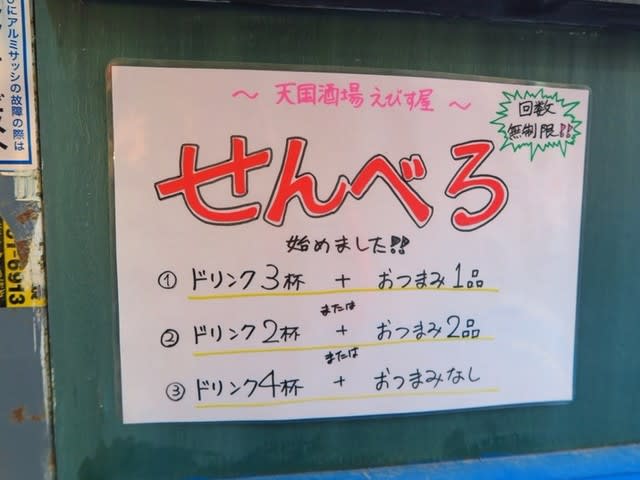 ～ 天国酒場えびす屋 ～
回数
無制限!!
せんべろ
始めました!!
① ドリンク3杯 + おつまみ1品
または
② ドリンク2杯 + おつまみ2品
または
③ ドリンク4杯 + おつまみなし
にアルミサッシの故障の際は